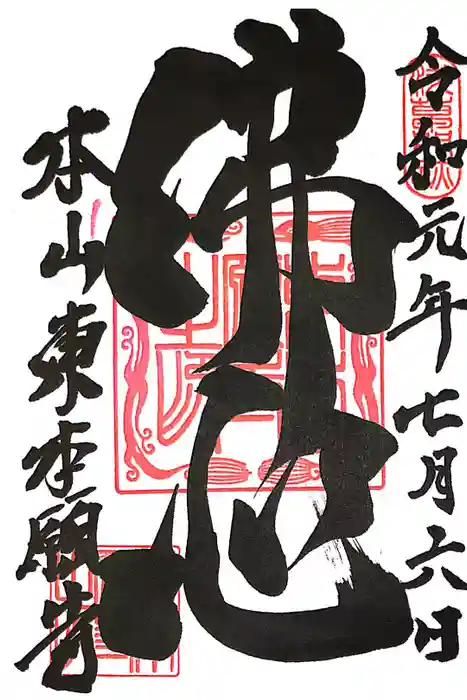 令和元年七月六日
佛心
本山東本願寺